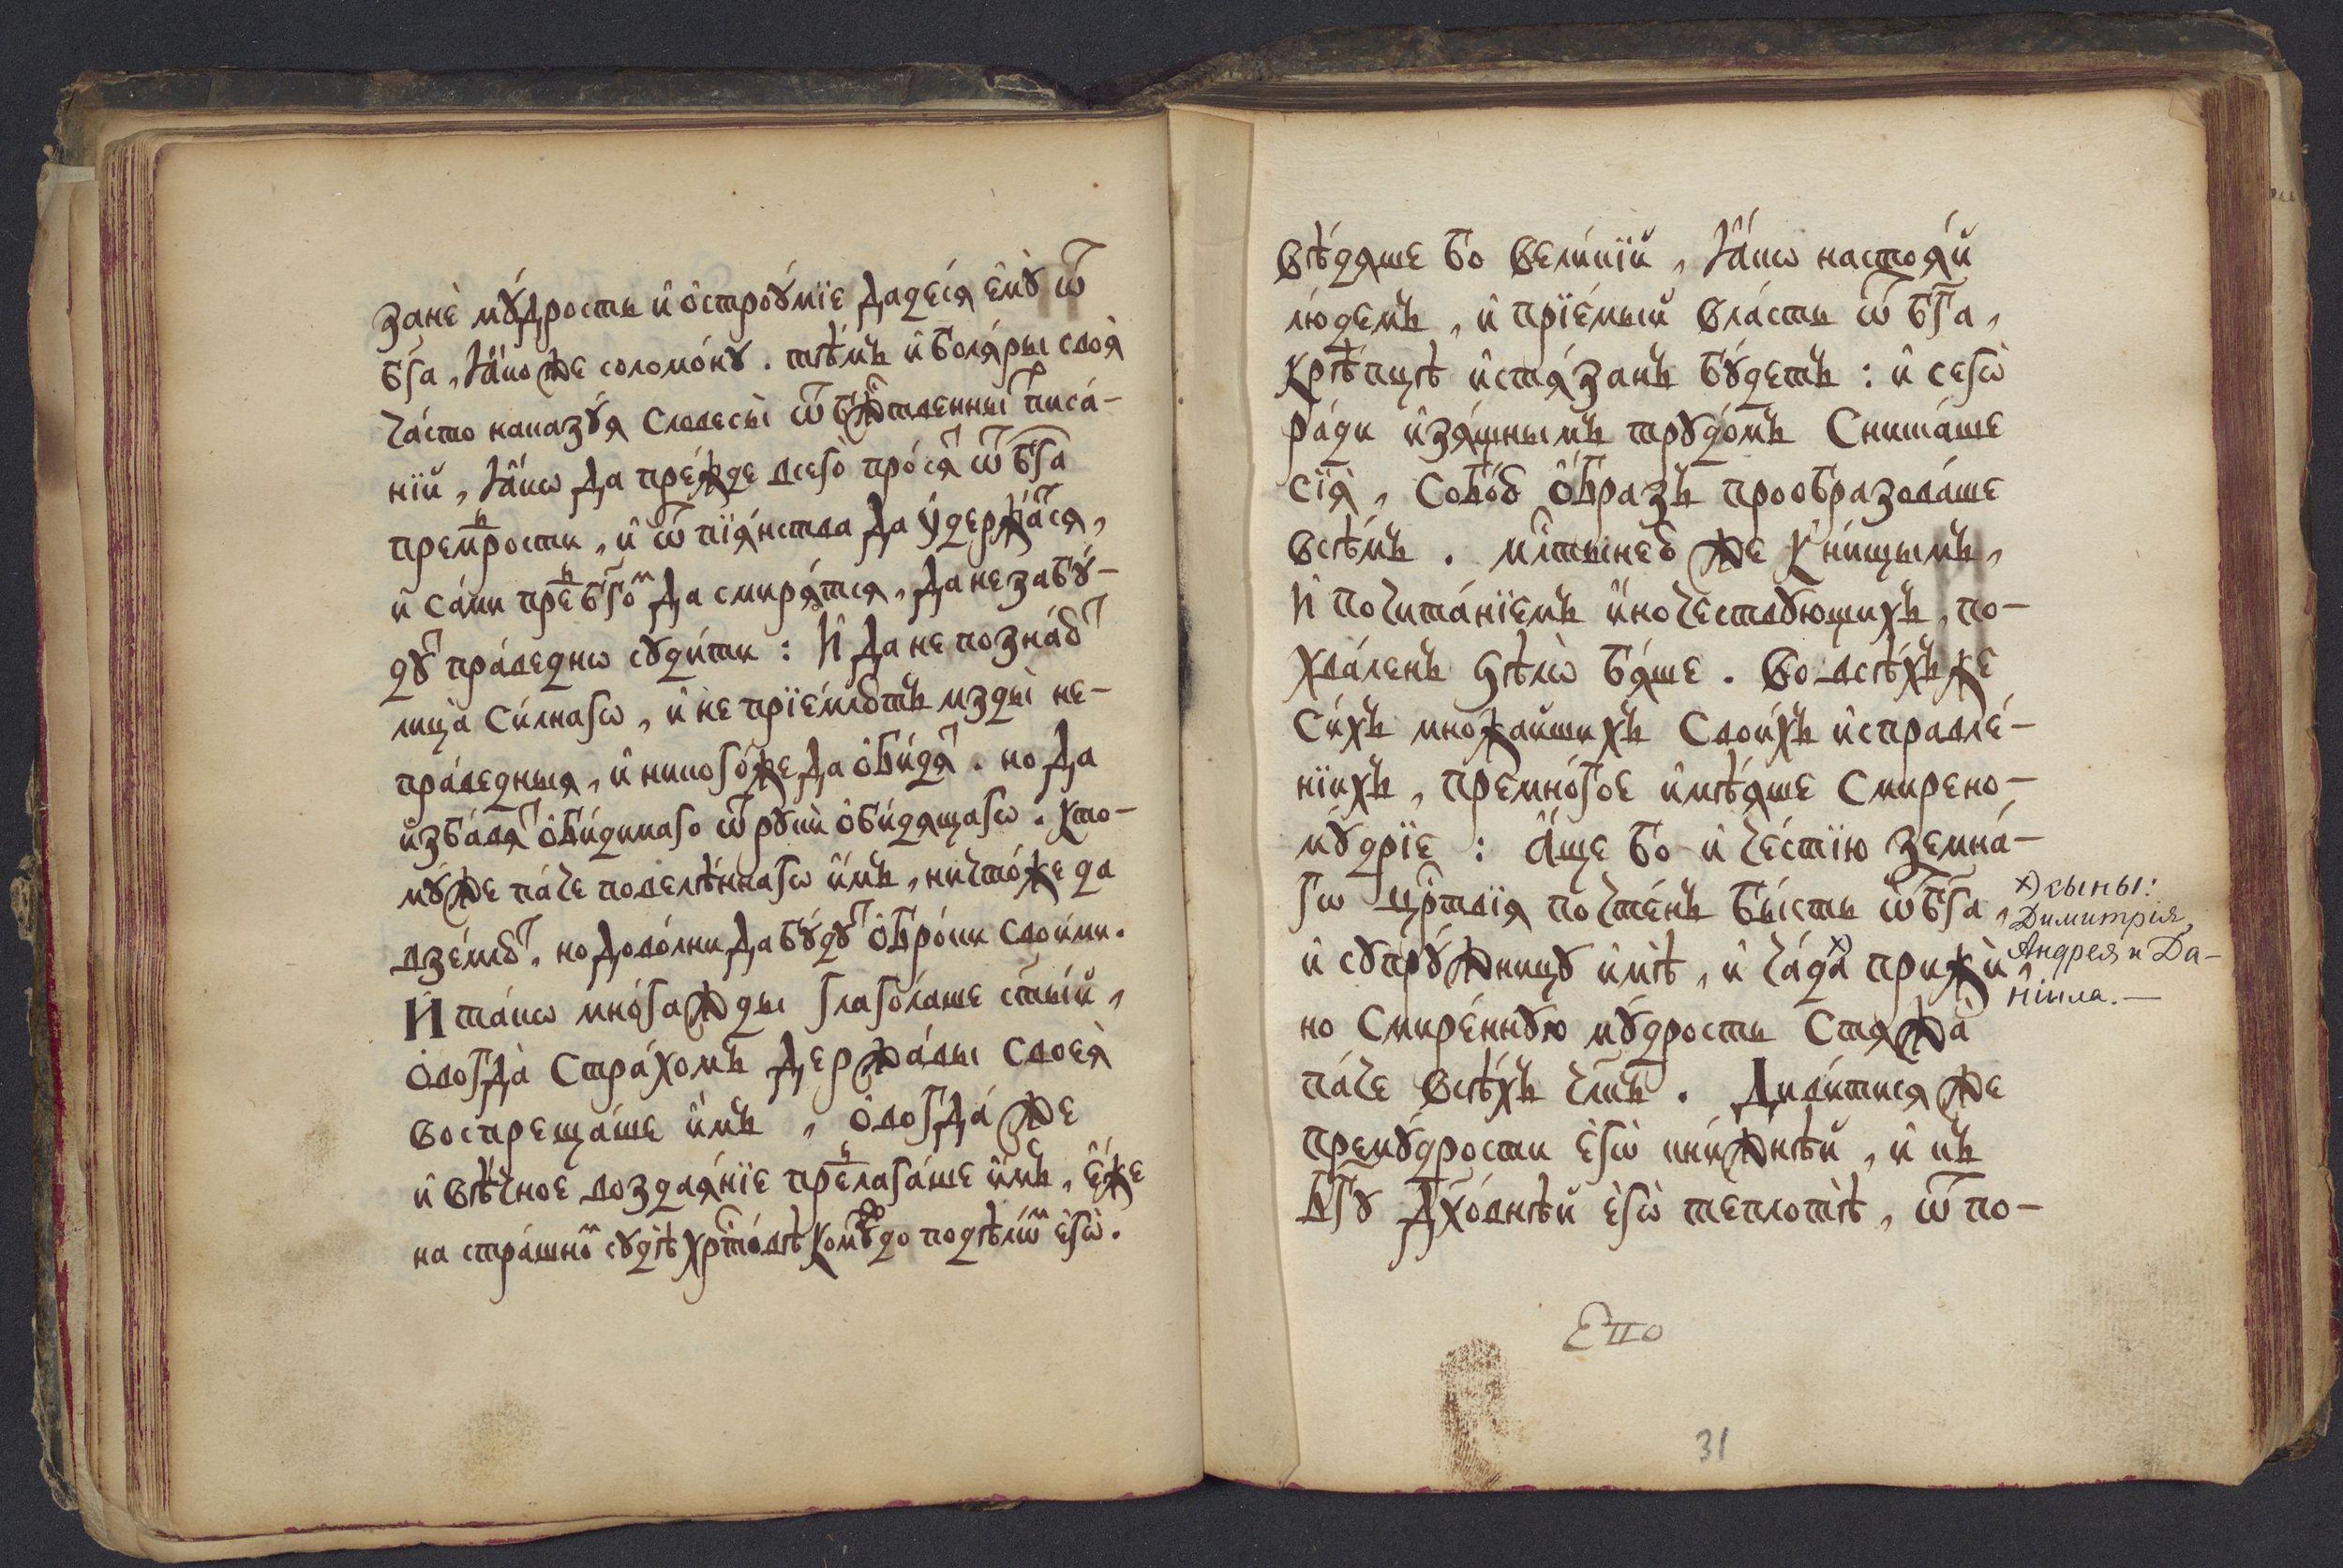 занѐ мꙋ́дрость и҆ ѻ҆строꙋ́мїе даде́сѧ є҆мꙋ̀ ѿ
бг҃а, ꙗ҆́коже соломо́нꙋ. тѣ́мъ и҆ болѧ́ры своѧ̀
ча́сто наказꙋ́ѧ словесы̀ ѿ бж҃твенны писа́-
нїй, ꙗ҆́кѡ да пре́жде всегѡ̀ про́сѧⷮ ѿ бг҃а
премⷣрости, и҆ ѿ пїѧ́нства да ᲂу҆держа́тсѧ,
и҆ са́ми преⷣ бг҃оⷨ да смирѧ́тсѧ, да не забꙋ́-
дꙋⷮ пра́веднѡ сꙋди́ти: И҆ да не позна́ютⷮ
лица̀ си́лнагѡ, и҆ не прїе́млютъ мзды̀ не-
пра́ведныѧ, и҆ никого́же да ѻ҆би́дѧⷮ. но да
и҆зба́вѧⷮ ѻ҆би́димаго ѿ рꙋкѝ ѻ҆би́дѧщагѡ. Кто-
мꙋ́же па́че повелѣ́ннагѡ и҆̀мъ, ничто́же да
взе́млюⷮ, но дово́лни да бꙋ́дꙋⷮ ѻ҆бро́ки свои́ми.
И҆ та́кѡ мно́гажды глаго́лаше ст҃ы́й,
ѻ҆вогда̀ стра́хомъ держа́вы своеѧ̀
воспреща́ше и҆̀мъ, ѻ҆вогда́ же
и҆ вѣ́чное воздаѧ́нїе преⷣлага́ше и҆̀мъ, є҆́же
на стра́шноⷨ сꙋдѣ̀ хрⷭ҇то́вѣ комꙋ́ждо по дѣлѡⷨ є҆гѡ̀.
Вѣ́дѧше бо вели́кїй, ꙗ҆́кѡ настоѧ́й
лю́демъ, и҆ прїе́мый вла́сть ѿ бг҃а,
крѣ́пцѣ и҆стѧ́занъ бꙋ́детъ: и҆ сегѡ̀
ра́ди и҆зѧ́щнымъ трꙋдо́мъ снита́ше
сїѧ̀, собо́ю ѻ҆́бразъ прообразова́ше
всѣ́мъ. млⷭ҇тынею же к̾ ни́щымъ,
и҆ почита́нїемъ и҆ночествꙋющихъ, по-
хва́ленъ ѕѣлѡ̀ бѧ́ше. Во всѣ́хъ же
си́хъ мно́жайшихъ свои́хъ и҆справле́-
нїихъ, премно́гое и҆мѣ́ѧше смирено-
мꙋ́дрїе: А҆́ще бо и҆ че́стїю земна́-
гѡ црⷭ҇твїѧ почте́нъ бы́сть ѿ бг҃а,
и҆ сꙋпрꙋ́жницꙋ и҆мѣ̀, и҆ ча̑да х) прижѝ,
но смире́ннꙋю мꙋ́дрость стѧжа̀
па́че всѣ́хъ чл҃къ. Диви́тисѧ же
премꙋ́дрости є҆гѡ̀ кни́жнѣй, и҆ къ
бг҃ꙋ дх҃о́внѣй є҆гѡ̀ теплотѣ̀, ѿ по-
х) сыны:
Димитрія,
Андрея и Да-
ніила.—
31